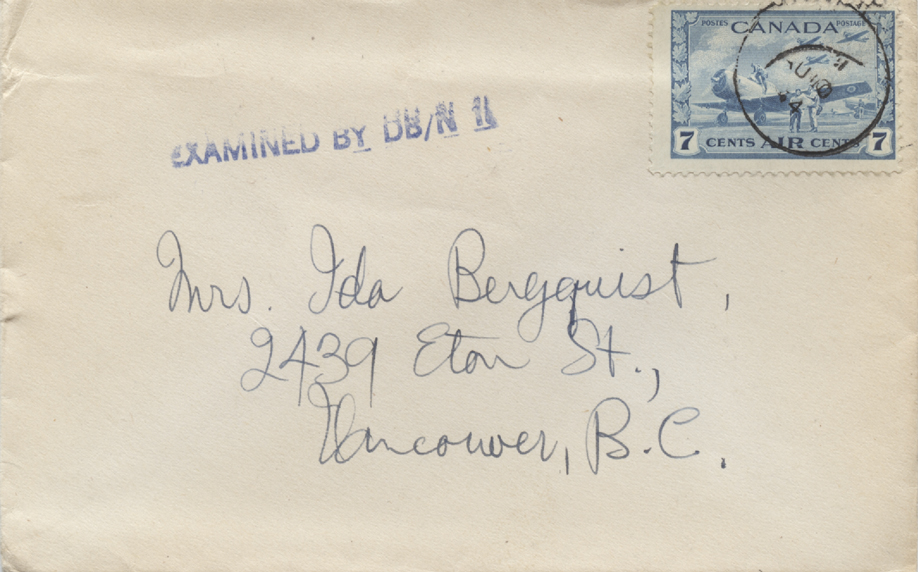 POSTES CANADA POSTAGE
7 CENTS AIR CENTS 7
EXAMINED BY DB/N 11
Mrs. Ida Bergquist,
2439 Eton St.,
Vancouver, B.C.